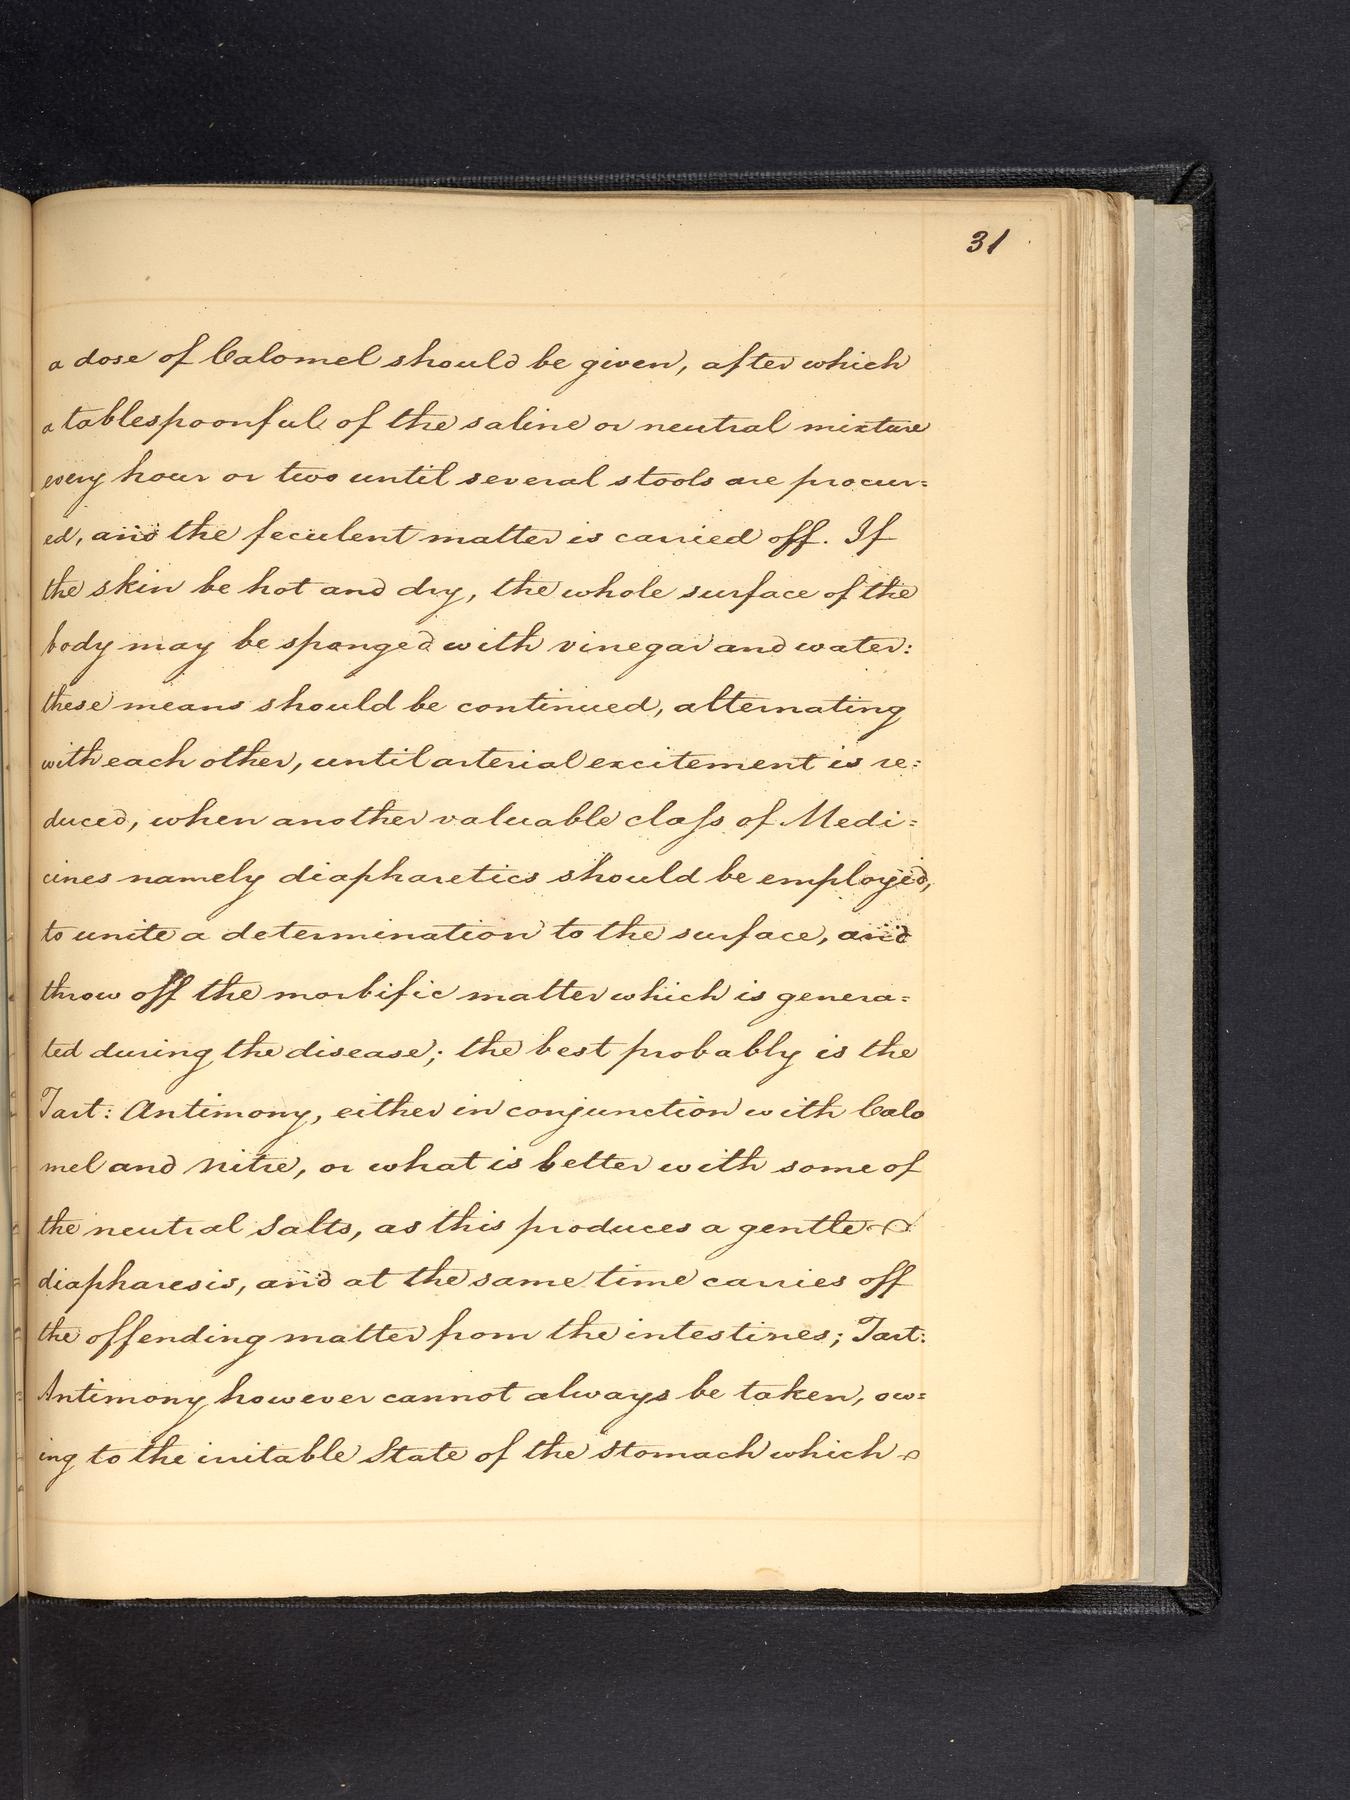 31
a dose of Calomel should be given, after which
a tablespoonful of the saline or neutral mixture
every hour or two until several stools are procur=
ed, and the feculent matter is carried off. If
the skin be hot and dry, the whole surface of the
body may be sponged with vinegar and water:
these means should be continued, alternating
with each other, until arterial excitement is re=
duced, when another valuable class of Medi=
cines namely diapharetics should be employed,
to unite a determination to the surface, and
throw off the morbific matter which is genera=
ted during the disease; the best probably is the
Tart: Antimony, either in conjunction with Calo
mel and Nitre, or what is better with some of
the neutral Salts, as this produces a gentle
diapharesis, and at the same time carries off
the offending matter from the intestines; Tart:
Antimony however cannot always be taken, ow=
ing to the irritable State of the stomach which